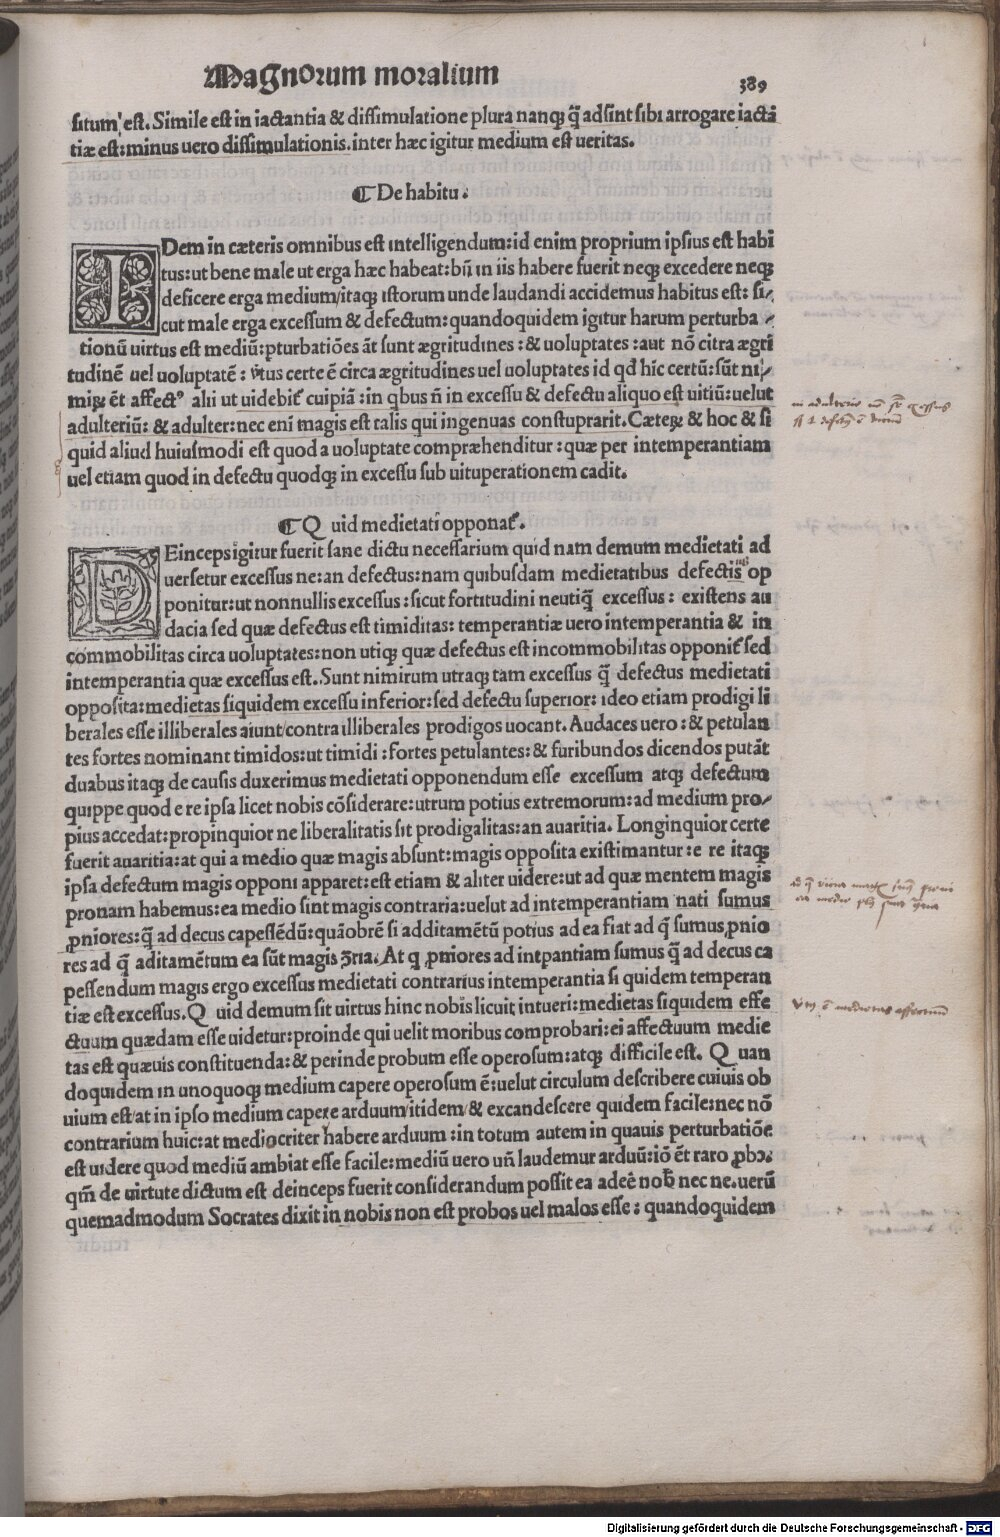 Magnorum moralium
389
situm est. Simile est in iactantia & dissimulatione plura nanqꝫ q̃ adsint sibi arrogare iactã
tiæ est: minus uero dissimulationis. inter hæc igitur medium est ueritas.
¶ De habitu.
IDem in cæteris omnibus est intelligendum: id enim proprium ipsius est habi
tus: ut bene male ut erga hæc habeat: bñ in iis habere fuerit neqꝫ excedere neqꝫ
deficere erga medium/itaqꝫ istorum unde laudandi accidemus habitus est: si/
cut male erga excessum & defectum: quandoquidem igitur harum perturba/
tionũ uirtus est mediũ: pturbatiões ãt sunt ægritudines: & uoluptates: aut nõ citra ægri
tudinẽ uel uoluptatẽ: ṽtus certe ẽ circa ægritudines uel uoluptates id qď hic certũ: sũt ni/
miꝝ ẽt affectꝰ alii ut uidebiť cuipiã: in qbus ñ in excessu & defectu aliquo est uitiũ: uelut
adulteriũ: & adulter: nec eni magis est talis qui ingenuas constuprarit. Cæteꝝ & hoc & si
quid aliud huiusmodi est quod a uoluptate compræhenditur: quæ per intemperantiam
uel etiam quod in defectu quodqꝫ in excessu sub uituperationem cadit.
¶ Q uid medietati opponať.
DEinceps igitur fuerit sane dictu necessarium quid nam demum medietati ad
uersetur excessus ne: an defectus: nam quibusdam medietatibus defectis op
ponitur: ut nonnullis excessus: sicut fortitudini neutiq̃ excessus: existens au
dacia sed quæ defectus est timiditas: temperantiæ uero intemperantia & in
commobilitas circa uoluptates: non utiqꝫ quæ defectus est incommobilitas opponiť sed
intemperantia quæ excessus est. Sunt nimirum utraqꝫ tam excessus q̃ defectus medietati
opposita: medietas siquidem excessu inferior: sed defectu superior: ideo etiam prodigi li
berales esse illiberales aiunt/contra illiberales prodigos uocant. Audaces uero: & petulan
tes fortes nominant timidos: ut timidi: fortes petulantes: & furibundos dicendos putãt
duabus itaqꝫ de causis duxerimus medietati opponendum esse excessum atqꝫ defectum
quippe quod e re ipsa licet nobis cõsiderare: utrum potius extremorum: ad medium pro/
pius accedat: propinquior ne liberalitatis sit prodigalitas: an auaritia. Longinquior certe
fuerit auaritia: at qui a medio quæ magis absunt: magis opposita existimantur: e re itaqꝫ
ipsa defectum magis opponi apparet: est etiam & aliter uidere: ut ad quæ mentem magis
pronam habemus: ea medio sint magis contraria: uelut ad intemperantiam nati sumus
ꝓniores: q̃ ad decus capessẽdũ: quãobrẽ si additamẽtũ potius ad ea fiat ad q̃ sumus ꝓnio
res ad q̃ aditamẽtum ea sũt magis ꝯ̃ria. At q ꝓniores ad intpantiam sumus q̃ ad decus ca
pessendum magis ergo excessus medietati contrarius intemperantia si quidem temperan
tiæ est excessus. Q uid demum sit uirtus hinc nobis licuit intueri: medietas siquidem effe
ctuum quædam esse uidetur: proinde qui uelit moribus comprobari: ei affectuum medie
tas est quæuis constituenda: & perinde probum esse operosum: atqꝫ difficile est. Q uan
doquidem in unoquoqꝫ medium capere operosum ẽ: uelut circulum describere cuiuis ob
uium est/at in ipso medium capere arduum/itidem/& excandescere quidem facile: nec nõ
contrarium huic: at mediocriter habere arduum: in totum autem in quauis perturbatiõe
est uidere quod mediũ ambiat esse facile: mediũ uero uñ laudemur arduũ: iõ ẽt raro ꝓbꝫ.
qm̃ de uirtute dictum est deinceps fuerit considerandum possit ea adeẽ nob̃ nec ne. uerũ
quemadmodum Socrates dixit in nobis non est probos uel malos esse: quandoquidem
Digitalisierung gefördert durch die Deutsche Forschungsgemeinschaft - DFG